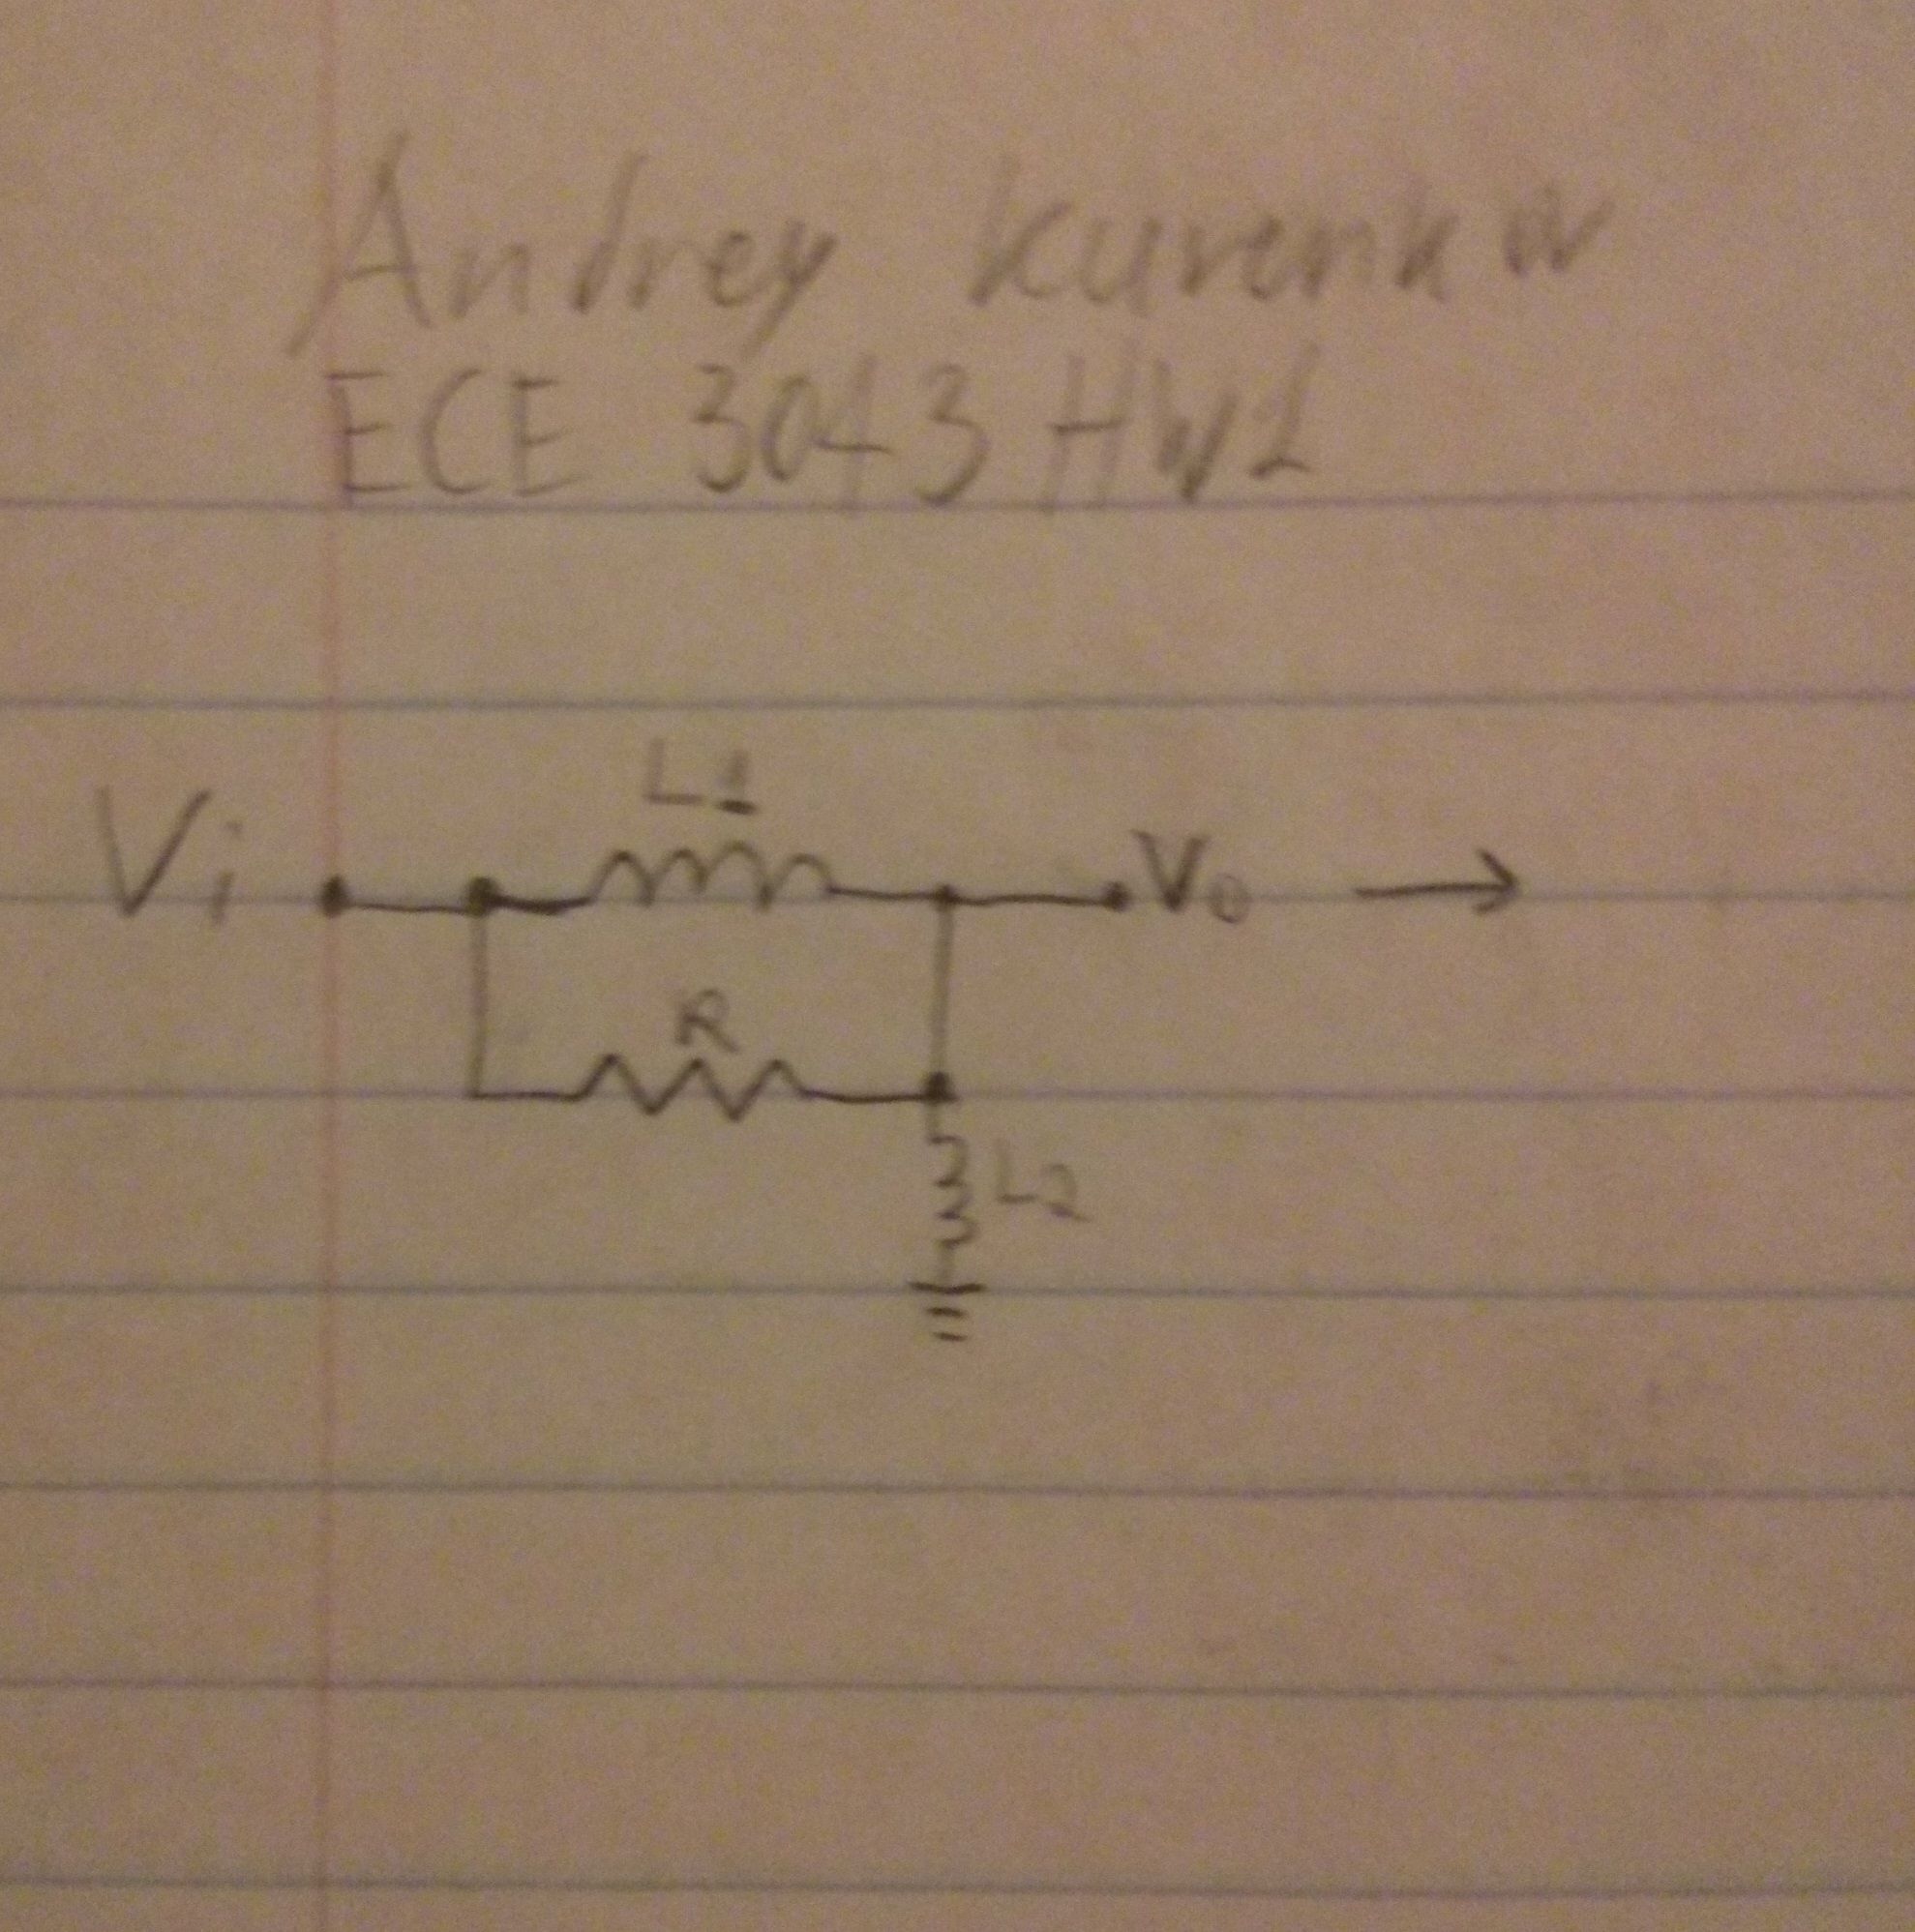 Andrey Kurenkov
ECE 3043 HW1
L1
Vi
Vo
R
L2